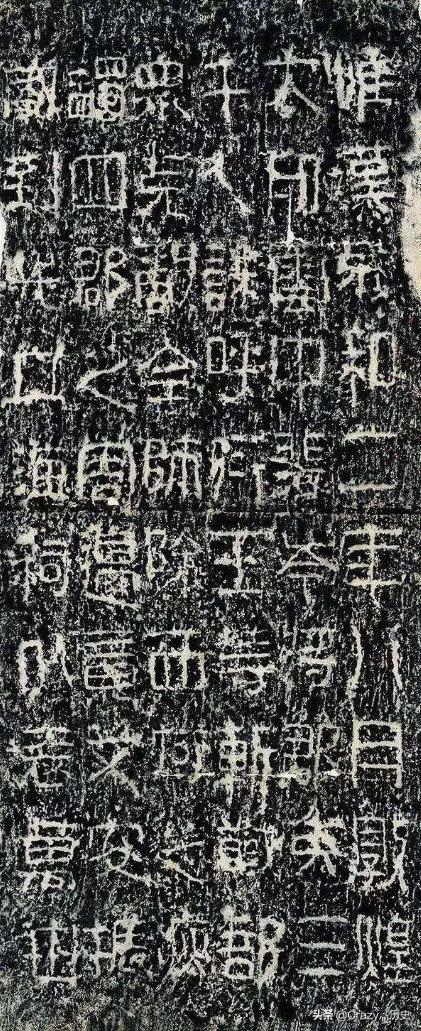 惟漢永和二年八月敦煌
太守雲中裴岑將郡兵三
千人誅呼衍王等斬馘部
眾克敵全師除西域之疢
蠲四郡之害邊竟艾安振
威到此立海祠以表萬世
头条 @Crazy、历史